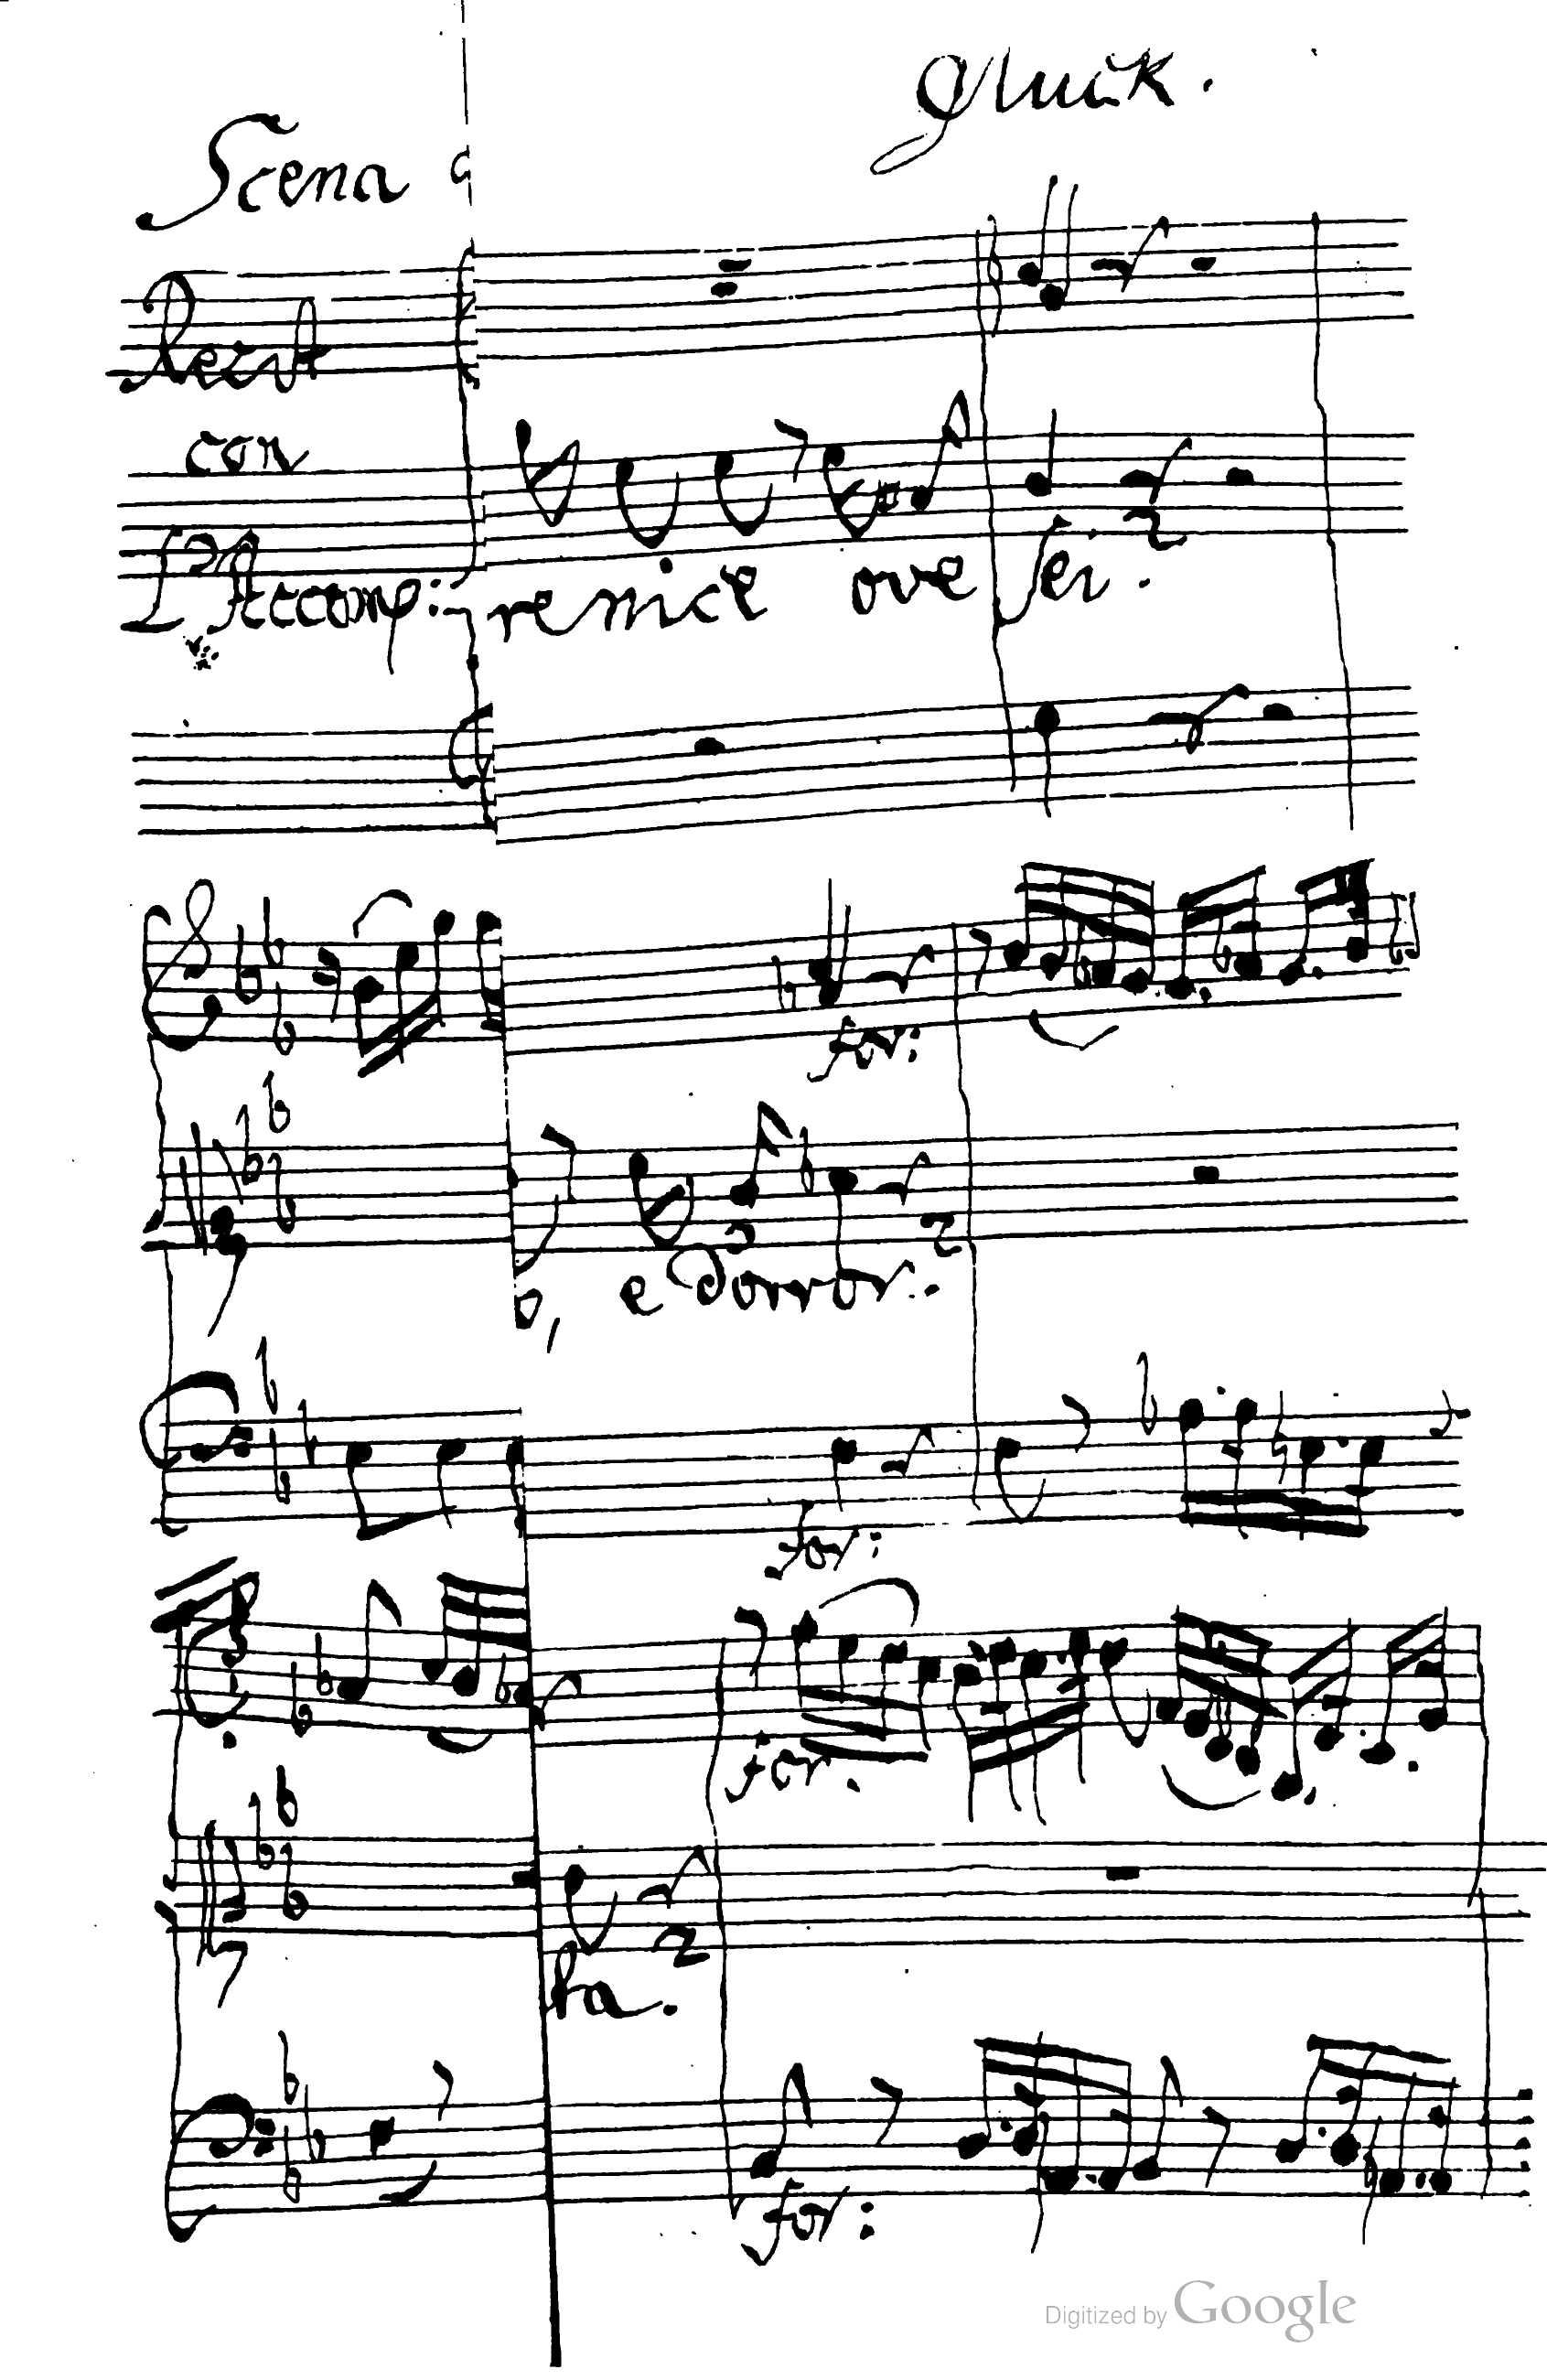 Gluck.
Scena 9
Recit
con
L'Accomp:
renice ove sei.
for:
o, e d'orror.
for:
for.
ta.
for:
Digitized by Google